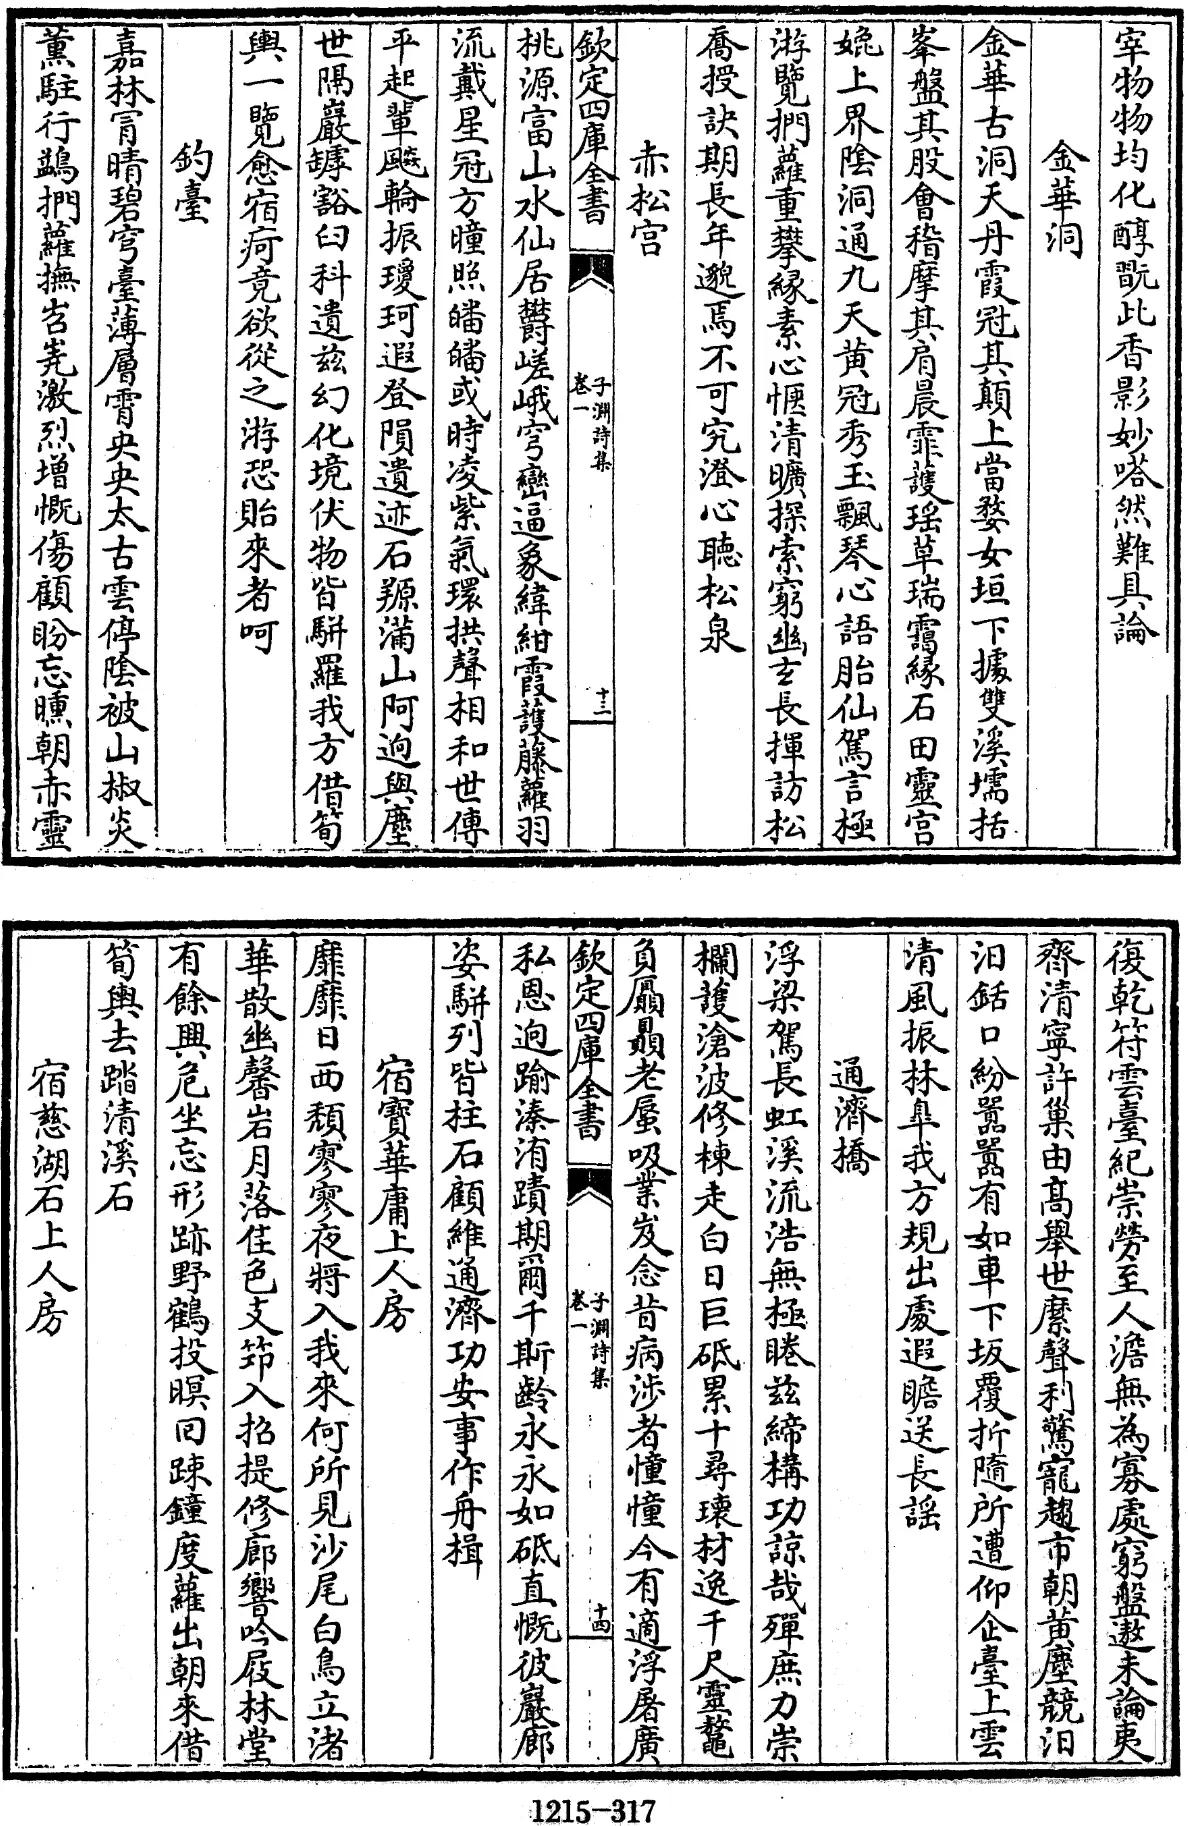 宰物物均化醇翫此香影妙嗒然難具論
金華洞
金華古洞天丹霞冠其顛上當婺女垣下據雙溪壖括
峯盤其股會稽摩其肩晨霏護瑤草瑞靄緣石田靈宫
媲上界陰洞通九天黄冠秀玉飄琴心語胎仙駕言極
游覽捫蘿重攀縁素心愜清曠探索窮幽玄長揮訪松
喬授訣期長年邈焉不可究澄心聽松泉
赤松宫
欽定四庫全書
子淵詩集
卷一
十三
桃源富山水仙居欝嵯峨穹巒逼象緯紺霞護藤蘿羽
流戴星冠方瞳照皤皤或時凌紫氣環拱聲相和世傳
平起輩飈輪振瓊珂遐登隕遺迹石羱滿山阿逈與塵
世隔巖罅豁臼科遺兹幻化境伏物皆駢羅我方借筍
輿一覽愈宿疴竟欲從之游恐貽來者呵
釣臺
嘉林罥晴碧穹臺薄層霄央央太古雲停陰被山椒炎
薫駐行鷁捫蘿撫岧嶤激烈增慨傷顧盼忘曛朝赤靈
復乾符雲臺紀崇勞至人澹無為寡處窮盤遨未論夷
齊清寧許巢由髙舉世縻聲利驚寵趨市朝黄塵競汨
汨銛口紛嚣嚣有如車下坂覆折隨所遭仰企臺上雲
清風振林臯我方規出處遐瞻送長謡
通濟橋
浮梁駕長虹溪流浩無極睠兹締構功諒哉殫庶力崇
欄護滄波修棟走白日巨砥累十尋壊材逸千尺靈鼇
負贔屭老蜃吸業岌念昔病涉者憧憧今有適浮屠廣
欽定四庫全書
子淵詩集
卷一
十四
私恩逈踰溱洧蹟期爾千斯齡永永如砥直慨彼巖廊
姿駢列皆柱石顧維通濟功安事作舟揖
宿寳華庸上人房
靡靡日西頹寥寥夜將入我來何所見沙尾白鳥立渚
華散幽馨岩月落佳色支笻入招提修廊響吟屐林堂
有餘興危坐忘形跡野鶴投暝囘踈鐘度蘿出朝來借
筍輿去踏清溪石
宿慈湖石上人房
1215-317